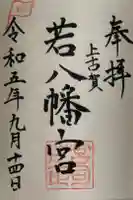 奉拝
上古賀
若八幡宮
令和五年九月十四日